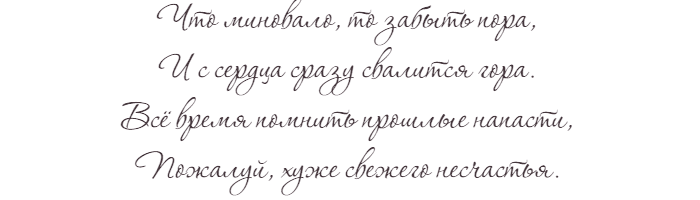 Что миновало, то забыть пора,
И с сердца сразу свалится гора.
Всё время помнить прошлые напасти,
Пожалуй, хуже свежего несчастья.